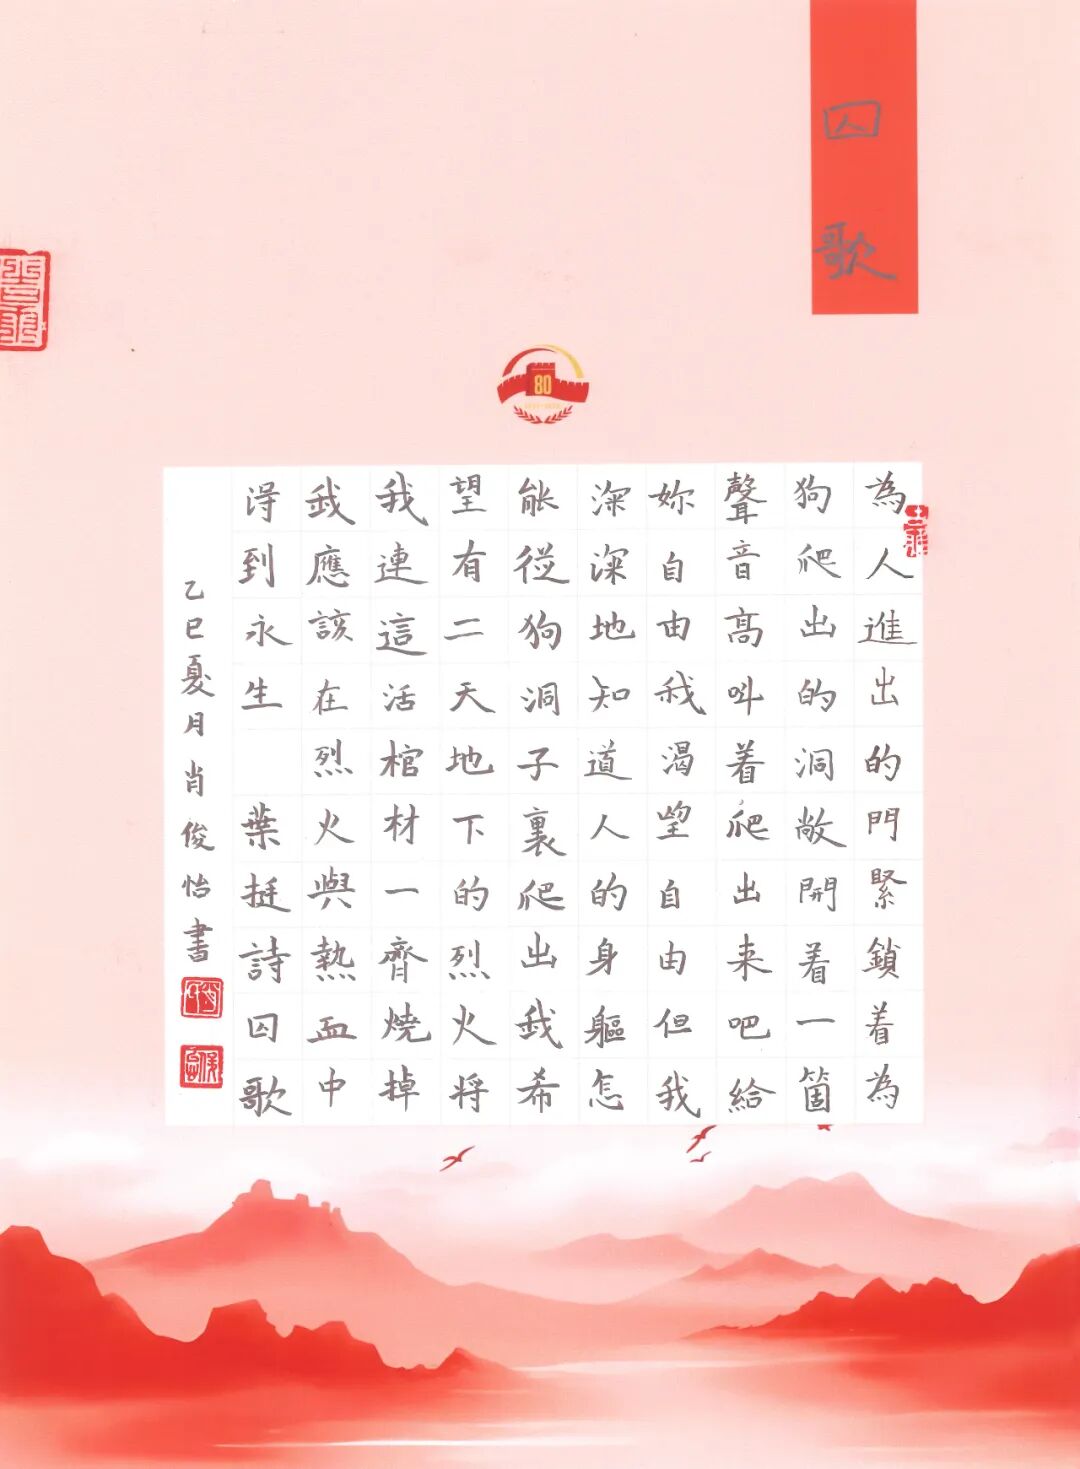 囚歌
80
為人進出的門緊鎖着為
狗爬出的洞敞開着一箇
聲音高叫着爬出来吧給
妳自由我渴望自由但我
深深地知道人的身軀怎
能從狗洞子裏爬出我希
望有二天地下的烈火将
我連這活棺材一齊燒掉
我應該在烈火與熱血中
得到永生 葉挺詩囚歌
乙巳夏月肖俊怡書